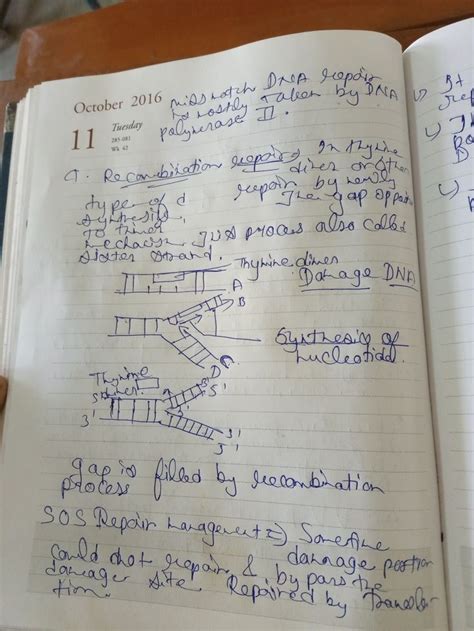 October 2016
11 Tuesday
285-081
Wk 42
mismatch DNA repair
is mostly Taken by DNA
polymerase II.
Recombination repair In thymine
dimer or other
type of d repair by newly
synthesis, The gap opposite
mechanism, This process also called
Sister Strand.
Thymine dimer
Damage DNA
A
B
Synthesis of
nucleotide.
D
C
Thymine
dimer
5'
3'
5'
3'
5'
gap is filled by recombination
process
SOS Repair management => Sometime
damage portion
could not repair & by pass the
damage site Repaired by Transler-
tion.